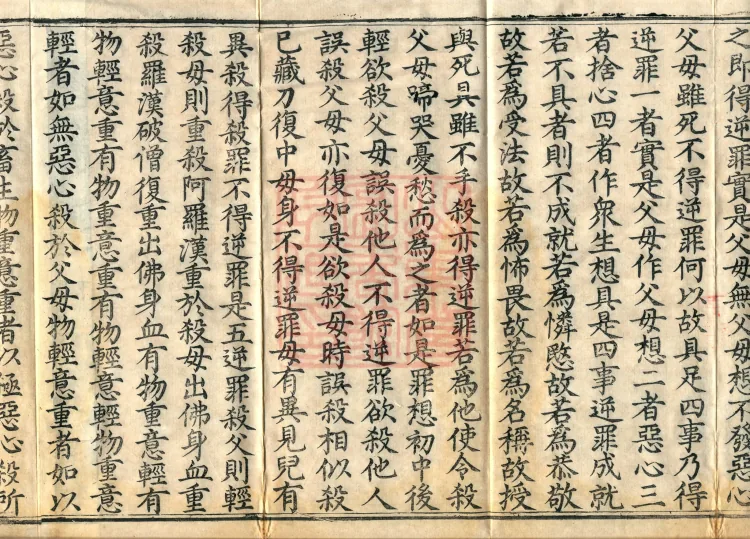 之即得逆罪實是父母無父母想不發惡心
父母雖死不得逆罪何以故具足四事乃得
逆罪一者實是父母作父母想二者惡心三
者捨心四者作衆生想具是四事逆罪成就
若不具者則不成就若為憐愍故若為恭敬
故若為受法故若為怖畏故若為名稱故授
與死具雖不手殺亦得逆罪若為他使令殺
父母啼哭憂愁而為之者如是罪想初中後
輕欲殺父母誤殺他人不得逆罪欲殺他人
誤殺父母亦復如是欲殺母時誤殺相似殺
已藏刀復中母身不得逆罪母有異見兒有
異殺得殺罪不得逆罪是五逆罪殺父則輕
殺母則重殺阿羅漢重於殺母出佛身血重
殺羅漢破僧復重出佛身血有物重意輕有
物輕意重有物重意重有物輕意輕物重意
輕者如無惡心殺於父母物輕意重者如以
惡心殺於畜生物重意重者以極惡心殺所